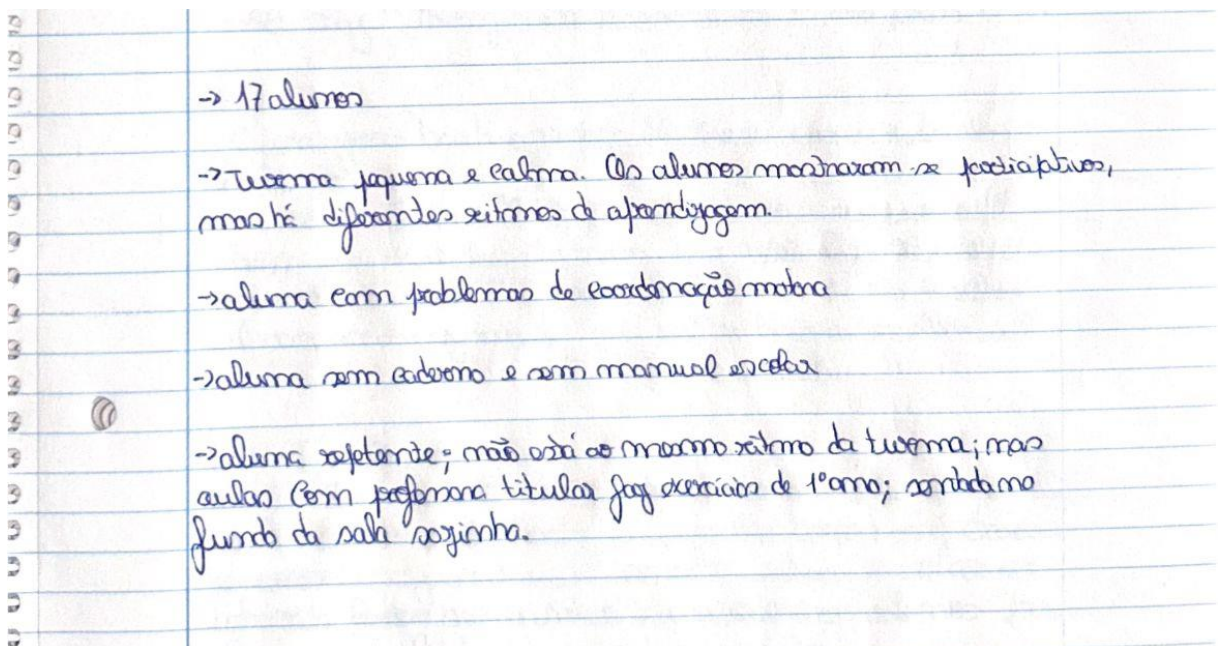 -> 17 alunos
-> Turma pequena e calma. Os alunos mostraram-se participativos,
mas há diferentes ritmos de aprendizagem.
-> aluna com problemas de coordenação motora
-> aluna sem caderno e sem manual escolar
-> aluna repetente; não está ao mesmo ritmo da turma; nas
aulas com professora titular faz exercícios de 1º ano; sentada no
fundo da sala sozinha.